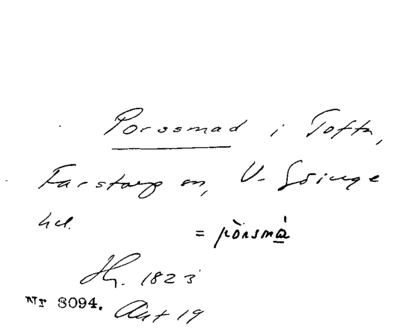 Porssmad i Tofta,
Farstorp sn, V. Göinge
hd.
= pòrsmà
Hr. 1823
Nr 8094. Ant 19